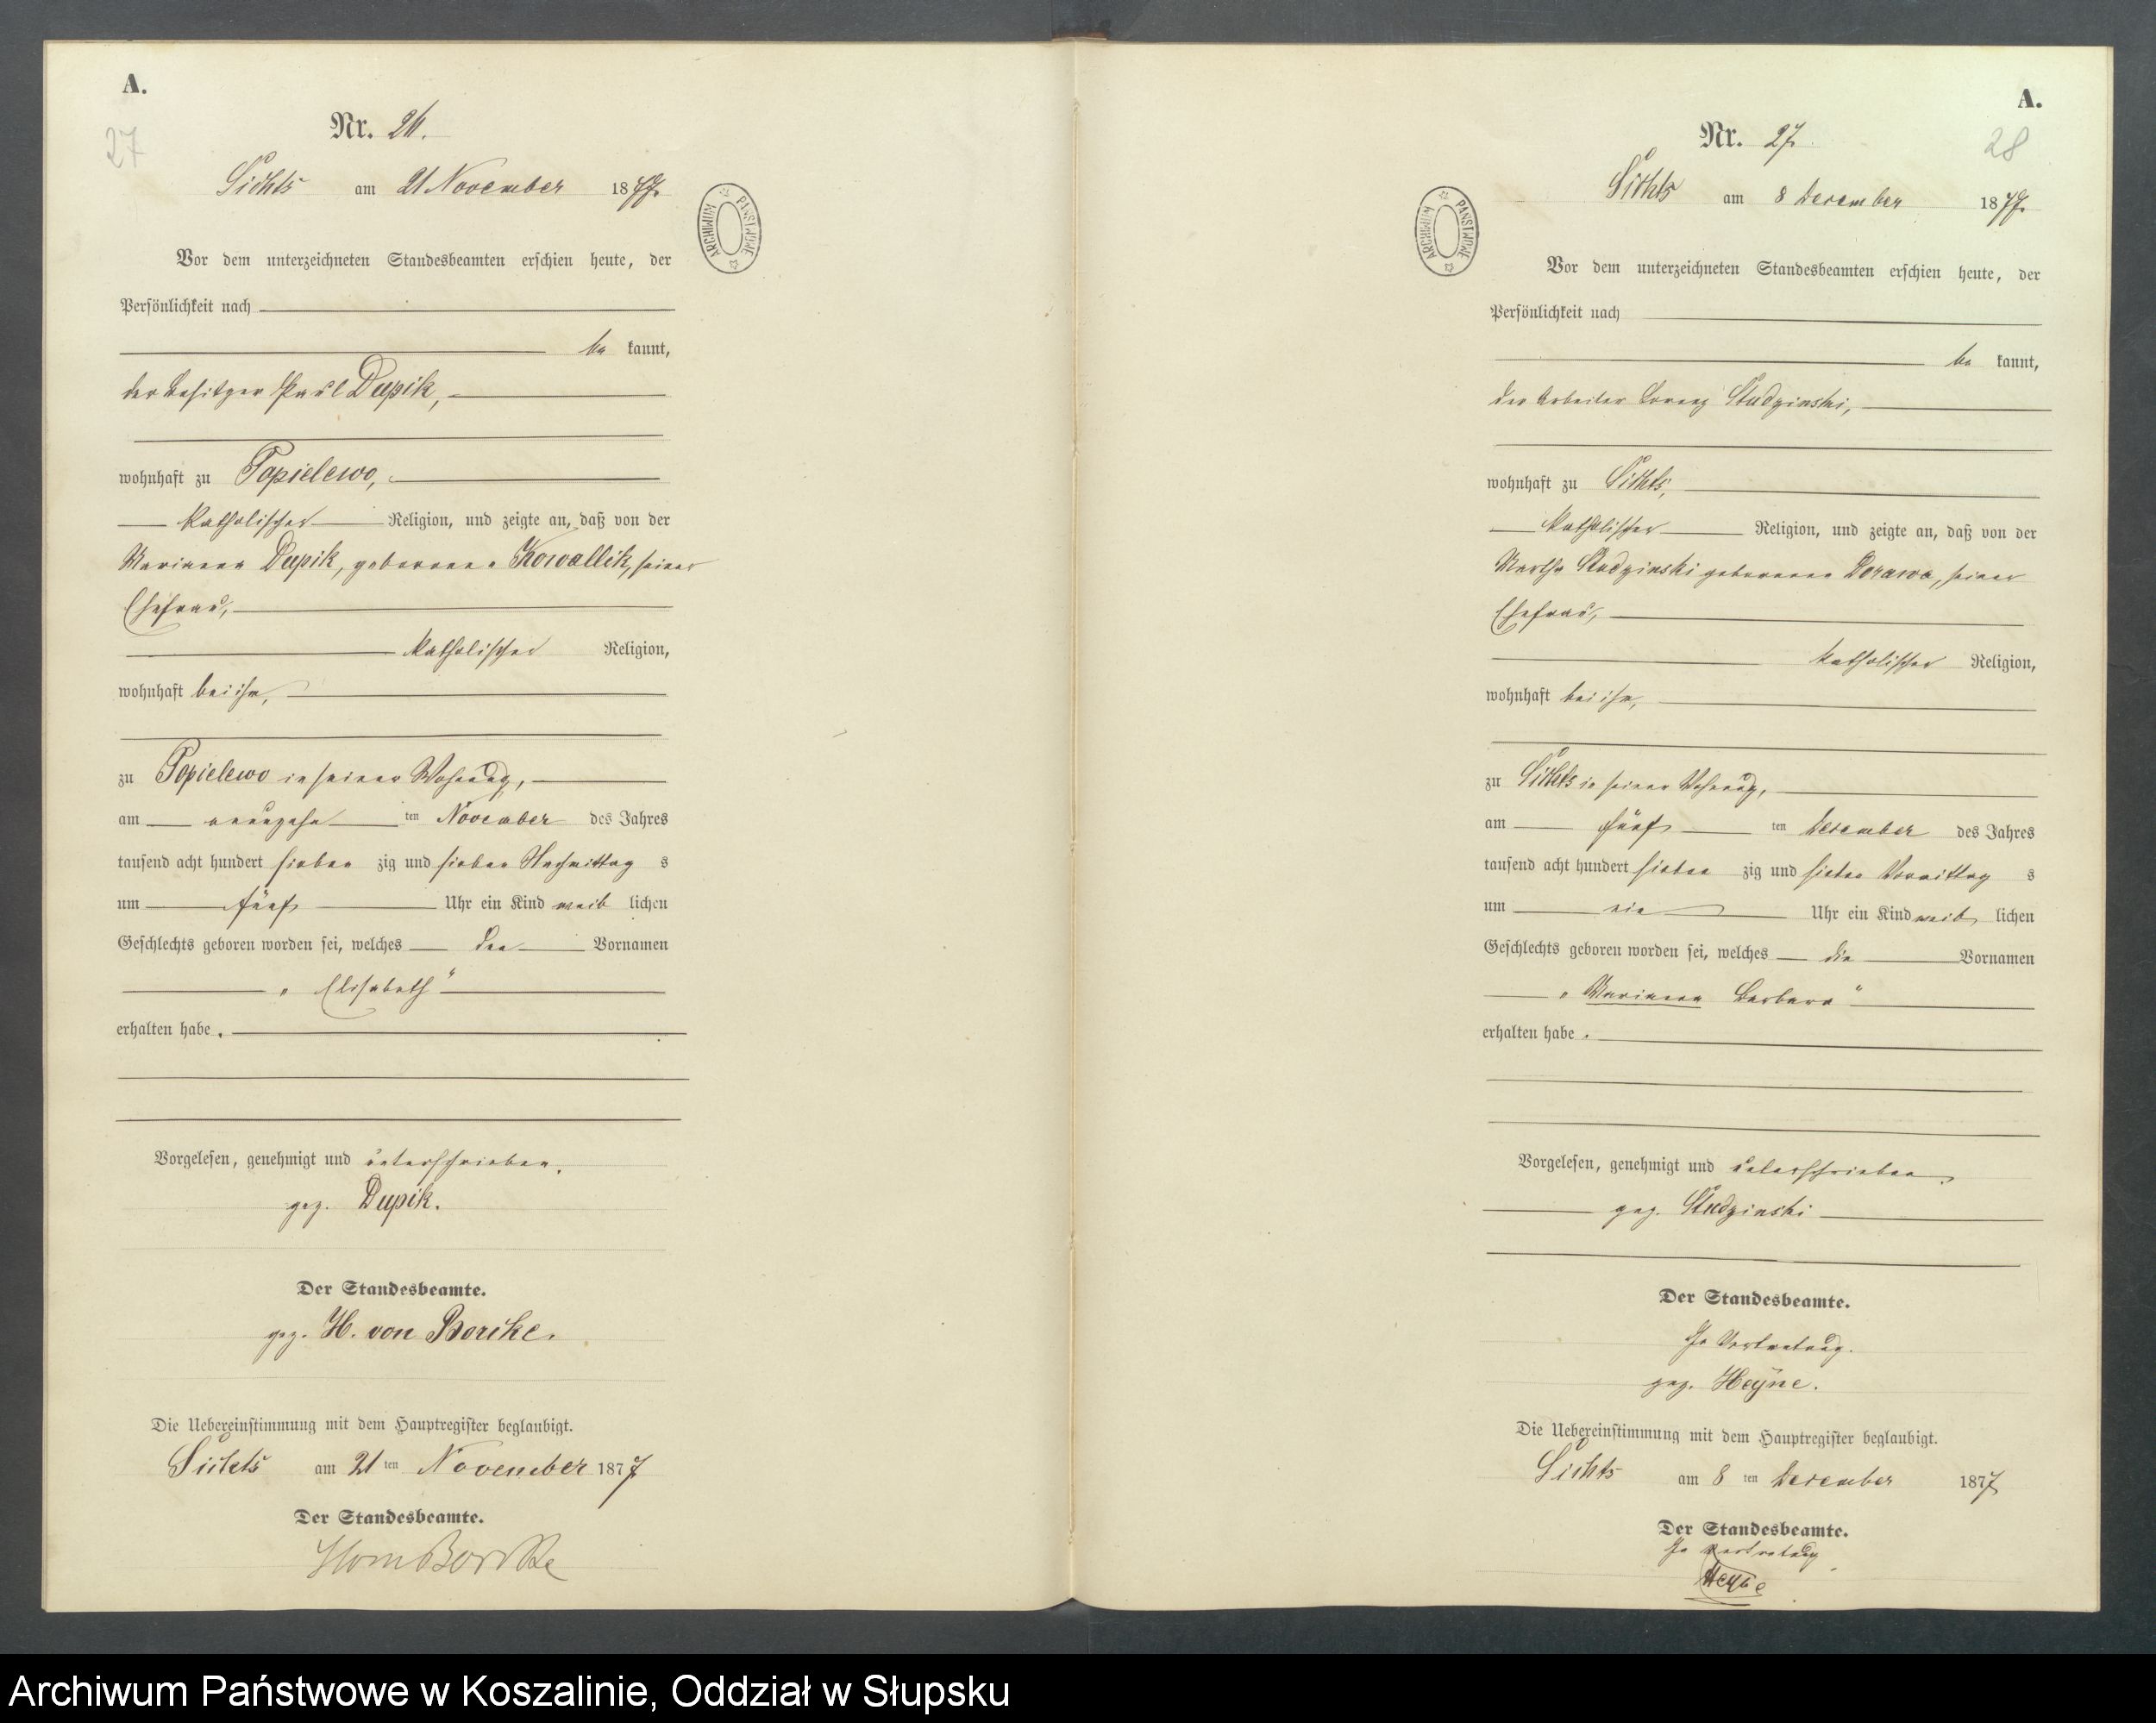 A.
27
Nr. 26.
Lichts am 21 November 1877.
ARCHIWUM PAŃSTWOWE
Vor dem unterzeichneten Standesbeamten erschien heute, der
Persönlichkeit nach
be kannt,
der Besitzer Paul Dupik,
wohnhaft zu Popielewo,
katholischer Religion, und zeigte an, daß von der
Marianna Dupik, geborenen Kowallik, seiner
Ehefrau,
katholischer Religion,
wohnhaft bei ihm,
zu Popielewo in seiner Wohnung,
am neunzehn ten November des Jahres
tausend acht hundert sieben zig und sieben Nachmittag s
um fünf Uhr ein Kind weib lichen
Geschlechts geboren worden sei, welches den Vornamen
„Elisabeth"
erhalten habe.
Vorgelesen, genehmigt und unterschrieben.
gez. Dupik.
Der Standesbeamte.
gez. H. von Borcke.
Die Uebereinstimmung mit dem Hauptregister beglaubigt.
Lichts am 21 ten November 1877
Der Standesbeamte.
HvonBorcke
A.
28
Nr. 27.
Lichts am 8 December 1877.
ARCHIWUM PAŃSTWOWE
Vor dem unterzeichneten Standesbeamten erschien heute, der
Persönlichkeit nach
be kannt,
der Arbeiter Lorenz Studzinski,
wohnhaft zu Lichts,
katholischer Religion, und zeigte an, daß von der
Martha Studzinski geborenen Dorawa, seiner
Ehefrau,
katholischer Religion,
wohnhaft bei ihm,
zu Lichts in seiner Wohnung,
am fünf ten December des Jahres
tausend acht hundert sieben zig und sieben Vormittag s
um ein Uhr ein Kind weib lichen
Geschlechts geboren worden sei, welches die Vornamen
„Marianna Barbara"
erhalten habe.
Vorgelesen, genehmigt und unterschrieben.
gez. Studzinski
Der Standesbeamte.
In Vertretung.
gez. Heyne.
Die Uebereinstimmung mit dem Hauptregister beglaubigt.
Lichts am 8 ten December 1877
Der Standesbeamte.
In Vertretung
Heyne
Archiwum Państwowe w Koszalinie, Oddział w Słupsku